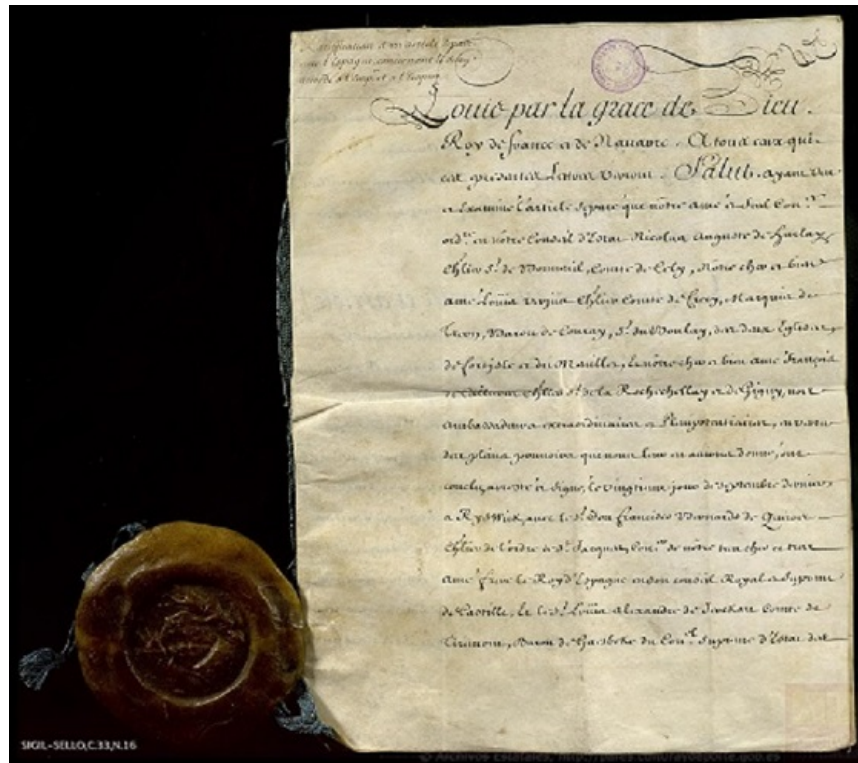 Ratification d'un article separé
avec l'Espagne, concernant
accordé à l'Emp.r et à l'Empire
Louis par la grace de Dieu
Roy de france et de Navarre. A tous ceux qui
ces presentes Lettres verront. Salut. ayant veu
et Examiné l'article separé que nôtre amé et feal Con.er
ord.re en nôtre Conseil d'Estat Nicolas Auguste de Harlay
Ch.lier S.r de Bonneuil, Comte de Cely, Nôtre cher et bien
amé Loüis Verjus Ch.lier Comte de Crecy, Marquis de
Treon, Baron de Couvay, S.r du Boulay, des deux Eglises,
de fortisle et du Meniller, Et nôtre cher et bien amé François
de Callieres Ch.lier S.r de la Rochechellay et de Gigny, nos
Ambassadeurs extraordinaires et Plenipotentiaires, en vertu
des pleins pouvoirs que nous leur en avions donné, ont
conclu, arresté et signé, le vingtieme jour de septembre dernier
a RysWick, avec le S.r Don francisco Bernardo de Quiros
Ch.lier de l'ordre de S.t Jacques, Con.er de nôtre tres cher et tres
amé frere le Roy d'Espagne en son conseil Royal et Supreme
de Castille, Et le S.r Loüis Alexandre de Scockart Comte de
Tirimont, Baron de Gaesbeke du Con.el Supreme d'Estat des
SIGIL-SELLO,C.33,N.16